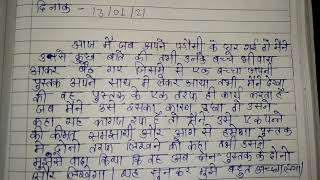 दिनांक - 13/01/21
आज मैं जब अपने पड़ोसी के घर गई तो मैंने
उनसे कुछ बातें की तभी उनके बच्चे भी पास
आकर बैठ गए जिसमें से एक बच्चा अपनी
पुस्तक अपने साथ में लेकर आया तभी मैंने देखा
की वह पुस्तक के एक तरफ ही कार्य करता है
जब मैंने उसे इसका कारण पूछा तो उसने
कहा यह कागज है तो मैंने उसे एक पन्ने
की कीमत समझायी और आगे से हमेशा पुस्तक
में दोनो तरफ लिखने को कहा तभी उसने
मुझसे वादा किया कि वह अब दोनो पुस्तक के दोनो
और लिखेगा। यह सुनकर मुझे बहुत अच्छा लगा।